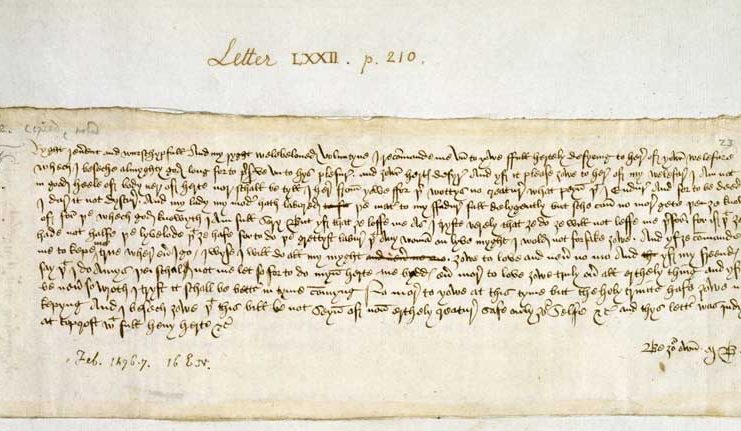 Letter LXXII . p. 210.
23
Ryght reverent and wurschypfull And my ryght welebeloved Voluntyne I recommande me vn to yowe ffull hertely desyring to here of yowr welefare
Whech I beseche almyghty god long for to p'serve vn to hys plesur and yowr herts desyr And yf it please yowe to here of my welefar I am not
in good heele of body ner of herte nor schall be tyll I here from yowe ffor yer wottys no creatur what peyn yt I Endur And for to be deede
I dur it not dyscur And my lady my moder hath labored ye mat' to my ffadur full delygently but sche can no mor gete yen ye knowe
of for ye whech god knowyth I am full sory But yf that ye loffe me As I tryste verely that ye do ye will not leffe me yerfor for if yt ye
hade not halfe ye lyvelode yt ye hafe for to do ye grettyst labur yt Any woman on lyve myght I wold not forsake yowe And yf ye commande
me to kepe me true wher ever I go I wyse I will do all my myght yowe to love and never no mo And yf my freends
say yt I do Amys yei schal not me let so for to do myn herte me bydds ever mor to love yowe truly over all erthely thing and yf
be never so wroth I tryst it schall be bett' in tyme commyng No mor to yowe at this tyme but the holy trinite hafe yowe
kepyng And I besech yowe yt this bill be not seyn of non erthely creatur safe only yor selfe &c And thys lett' was indy
at topcroft wt full hevy herte &c
Be yor own M B
Feb. 1476-7. 16 E. IV.